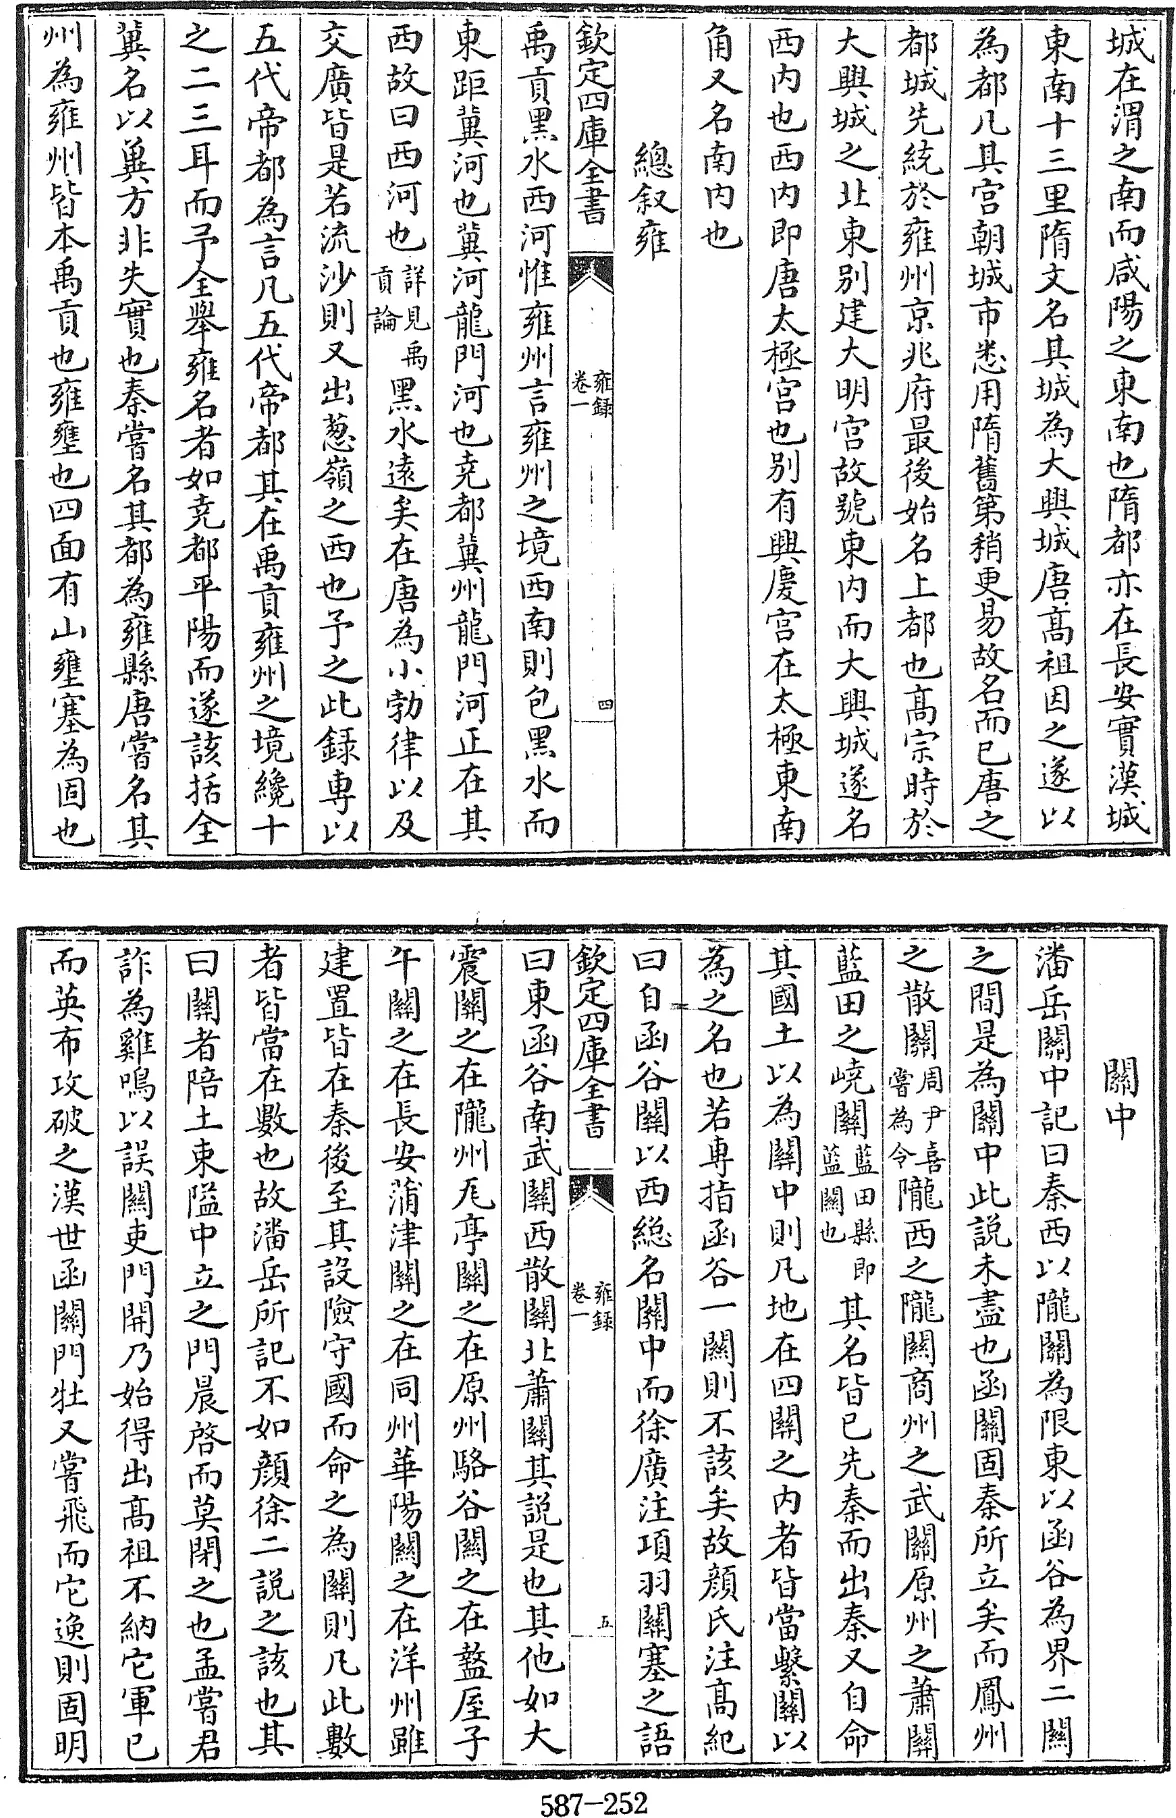 城在渭之南而咸陽之東南也隋都亦在長安實漢城
東南十三里隋文名其城為大興城唐髙祖因之遂以
為都凡其宫朝城市悉用隋舊第稍更易故名而已唐之
都城先統於雍州京兆府最後始名上都也髙宗時於
大興城之北東别建大明宫故號東内而大興城遂名
西内也西内即唐太極宫也别有興慶宫在太極東南
角又名南内也
總叙雍
欽定四庫全書
雍録
卷一
四
禹貢黑水西河惟雍州言雍州之境西南則包黑水而
東距冀河也冀河龍門河也堯都冀州龍門河正在其
西故曰西河也詳見禹貢論黑水逺矣在唐為小勃律以及
交廣皆是若流沙則又出葱嶺之西也予之此録専以
五代帝都為言凡五代帝都其在禹貢雍州之境纔十
之二三耳而予全舉雍名者如堯都平陽而遂該括全
冀名以冀方非失實也秦嘗名其都為雍縣唐嘗名其
州為雍州皆本禹貢也雍壅也四面有山壅塞為固也
關中
潘岳關中記曰秦西以隴關為限東以函谷為界二關
之間是為關中此説未盡也函關固秦所立矣而鳳州
之散關周尹喜嘗為令隴西之隴關商州之武關原州之蕭關
藍田之嶢關藍田縣即藍關也其名皆已先秦而出秦又自命
其國土以為關中則凡地在四關之内者皆當繫關以
為之名也若専指函谷一關則不該矣故顔氏注髙紀
曰自函谷關以西総名關中而徐廣注項羽關塞之語
欽定四庫全書
雍録
卷一
五
曰東函谷南武關西散關北蕭關其説是也其他如大
震關之在隴州瓦亭關之在原州駱谷關之在盩厔子
午關之在長安蒲津關之在同州華陽關之在洋州雖
建置皆在秦後至其設險守國而命之為關則凡此數
者皆當在數也故潘岳所記不如顔徐二説之該也其
曰關者陪土東隘中立之門晨啓而莫閉之也孟嘗君
詐為雞鳴以誤關吏門開乃始得出髙祖不納它軍已
而英布攻破之漢世函關門牡又嘗飛而它逸則固明
587-252